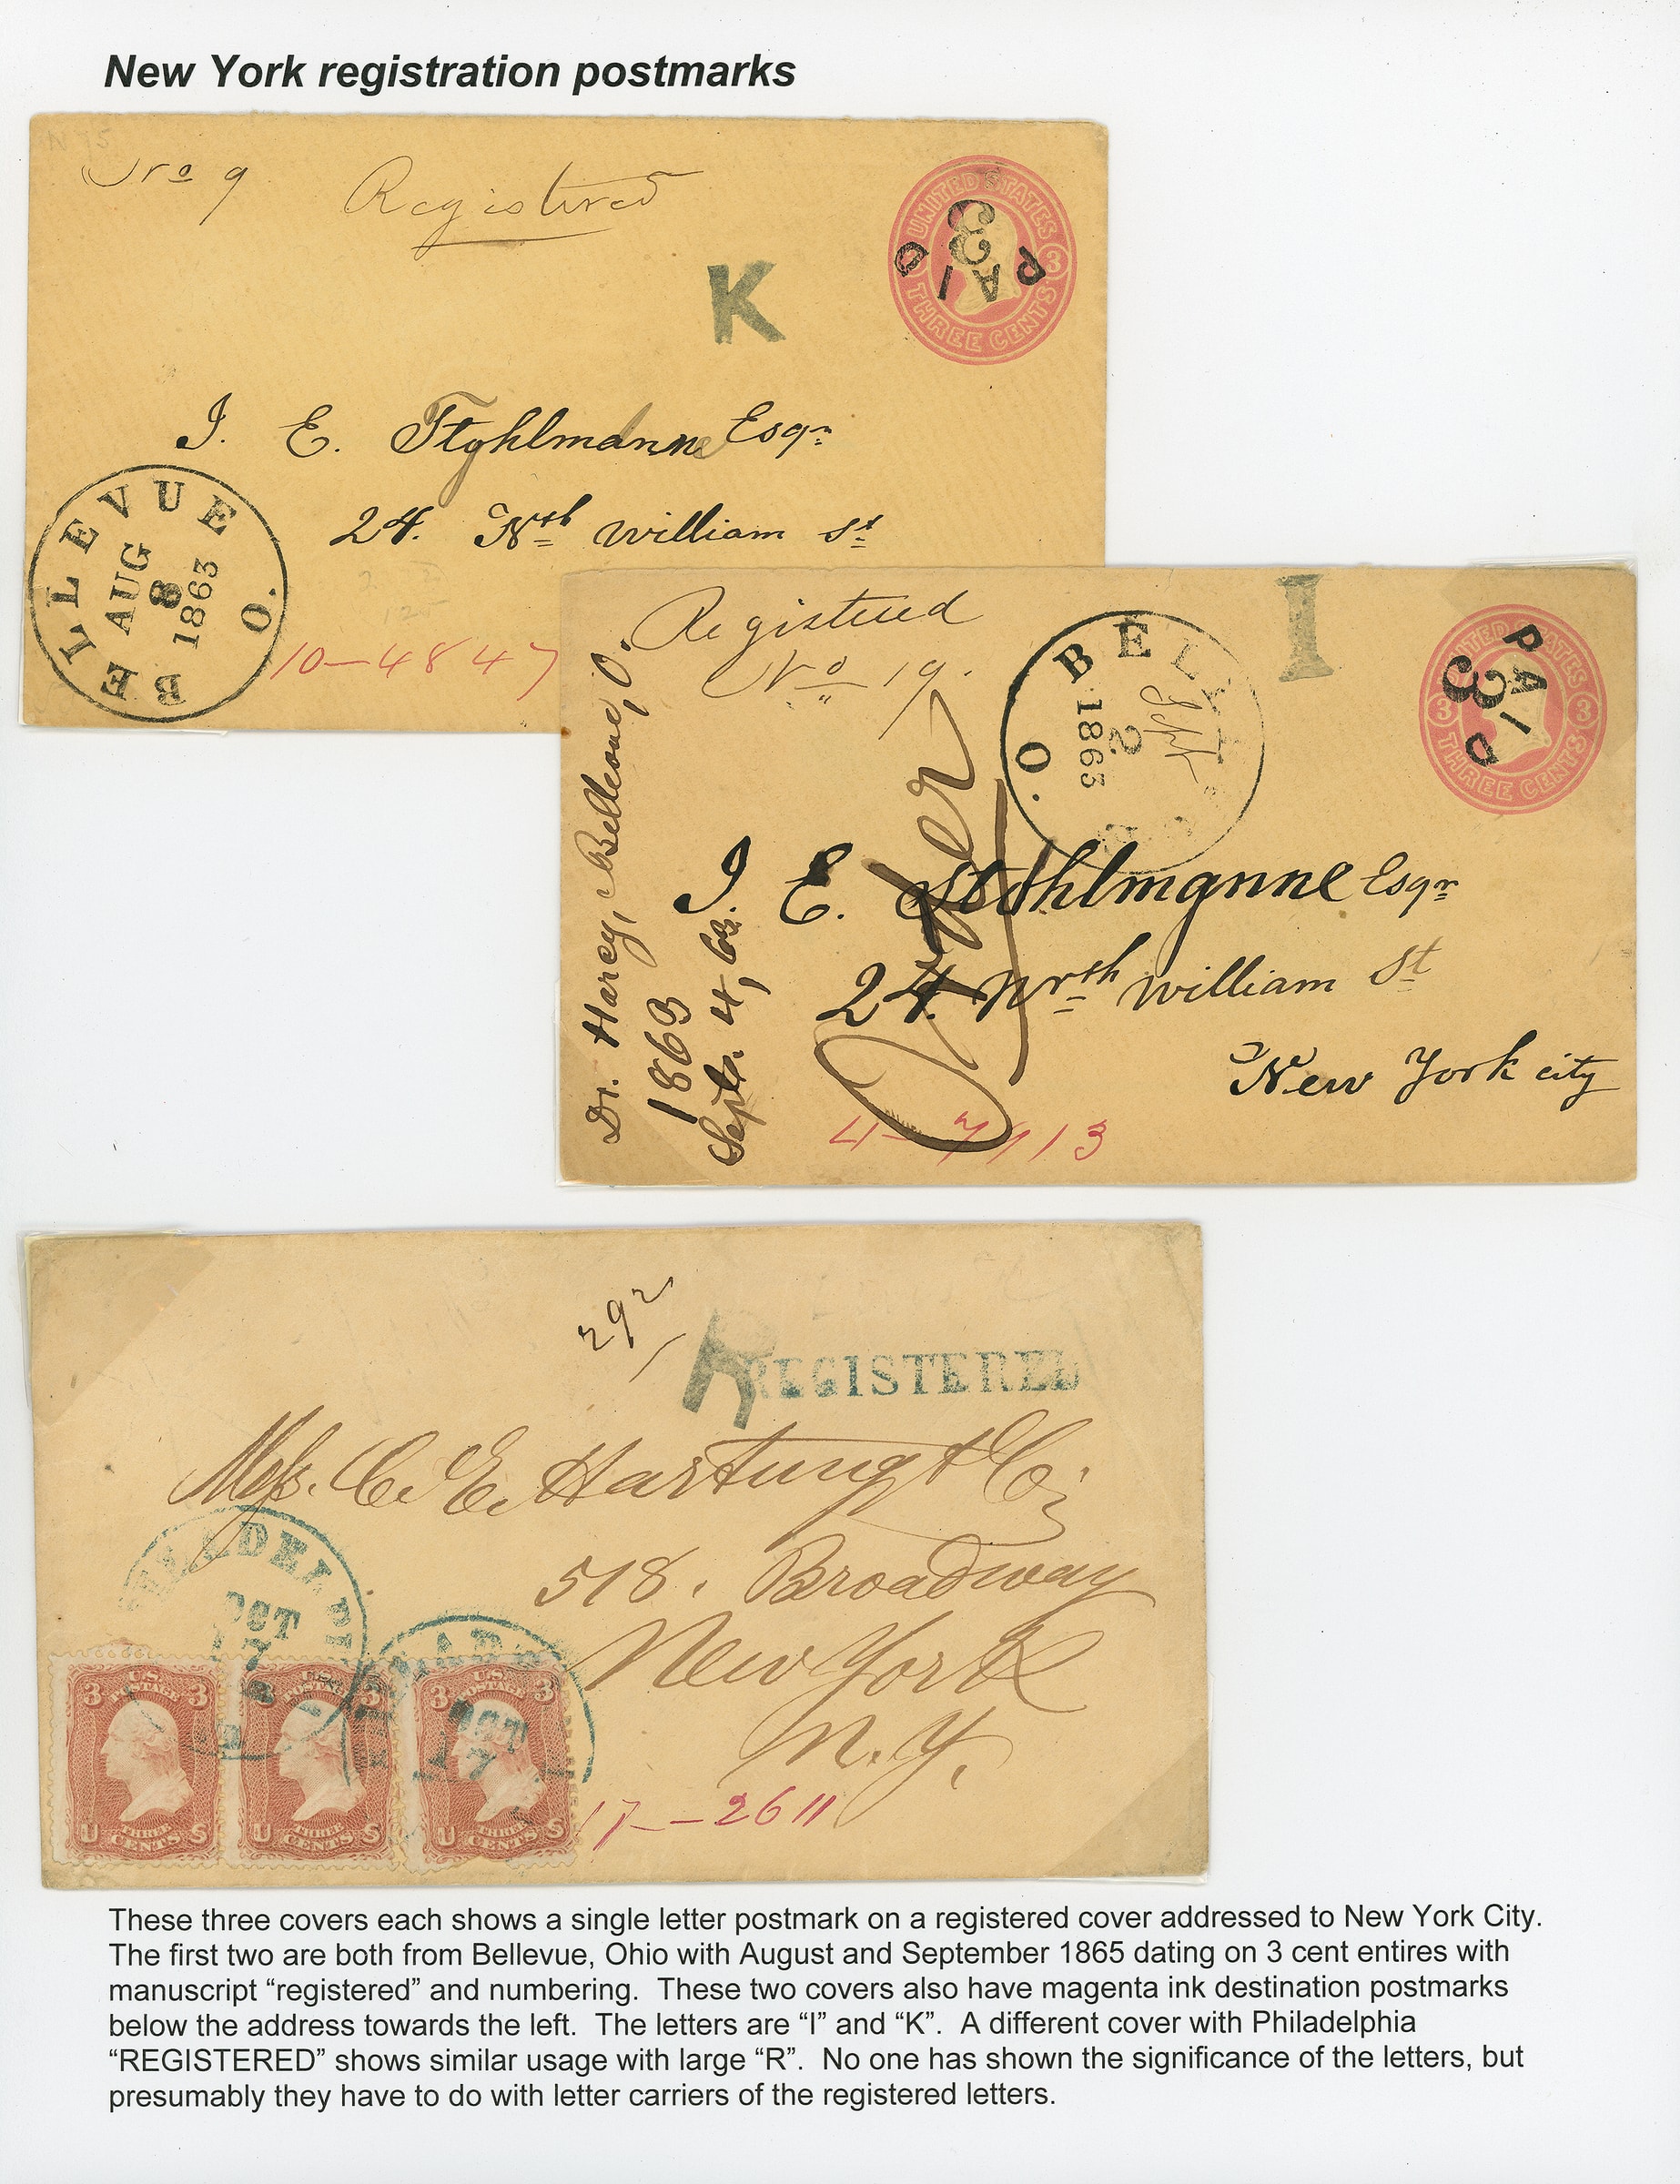 New York registration postmarks
N 75
No 9
Registered
K
UNITED STATES
THREE CENTS
3 3
PAID
3
J. E. Stohlmann Esqr
24. Nth William St
BELLEVUE O.
AUG
8
1863
10-4847
Registered
No 19.
I
BELL O.
Sept
2
1863
UNITED STATES
THREE CENTS
3 3
PAID
3
Dr. Harey, Bellevue, O.
1863
Sept. 4, 63.
J. E. Stohlmanne Esqr
24. Nrth William St
New York city
4-7113
292
R
REGISTERED
Mess. C. E. Hartung & Co;
518. Broadway
New York
N.Y.
PHILADELPHIA
OCT
17
OCT
17
U.S. POSTAGE
3 3
U THREE CENTS S
U.S. POSTAGE
3 3
U THREE CENTS S
U.S. POSTAGE
3 3
U THREE CENTS S
17--2611
These three covers each shows a single letter postmark on a registered cover addressed to New York City.
The first two are both from Bellevue, Ohio with August and September 1865 dating on 3 cent entires with
manuscript “registered” and numbering.  These two covers also have magenta ink destination postmarks
below the address towards the left.  The letters are “I” and “K”.  A different cover with Philadelphia
“REGISTERED” shows similar usage with large “R”.  No one has shown the significance of the letters, but
presumably they have to do with letter carriers of the registered letters.